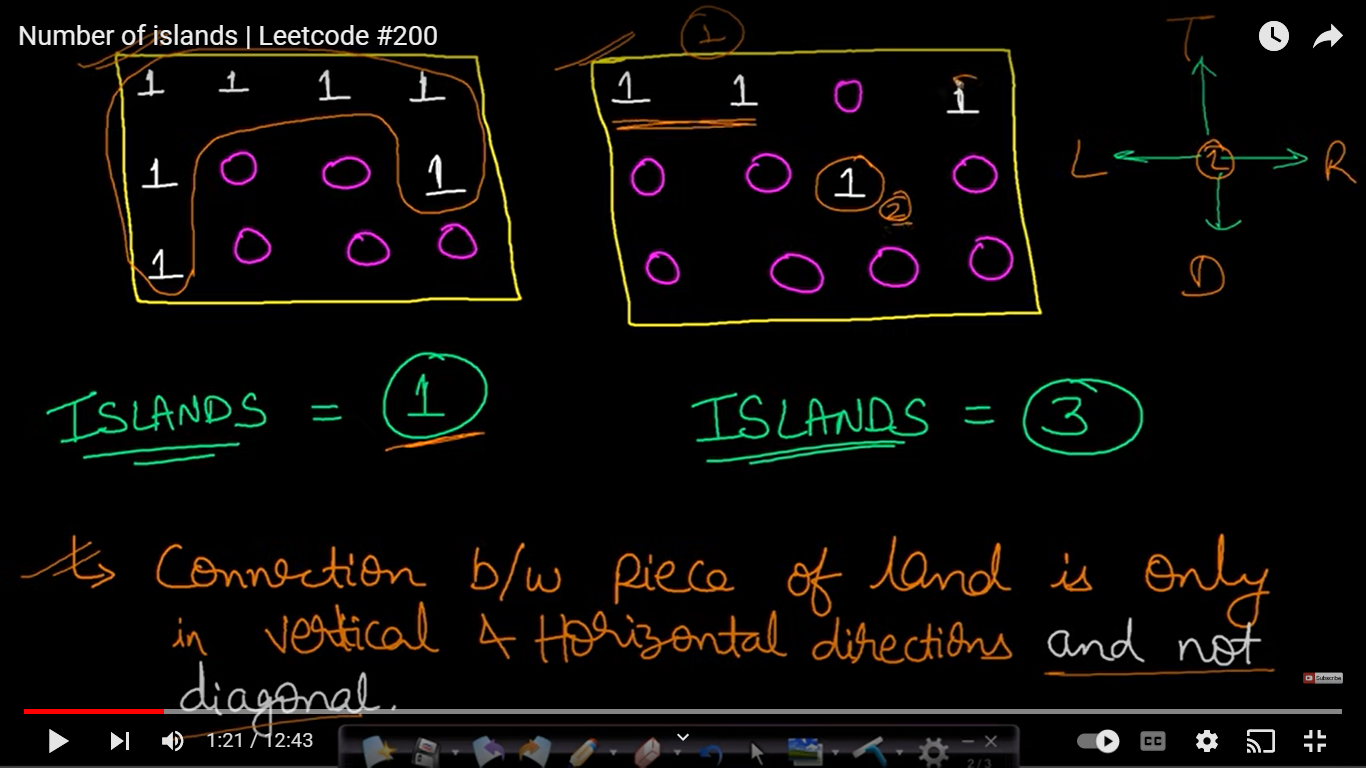 Number of islands | Leetcode #200
1
T
1 1 1 1
1 1 0 1
1 0 0 1
0 0 1 0
2
L 1 R
1 0 0 0
0 0 0 0
D
ISLANDS = 1
ISLANDS = 3
Connection b/w piece of land is only
in vertical & Horizontal directions and not
diagonal.
Subscribe
1:21 / 12:43
CC
2/3